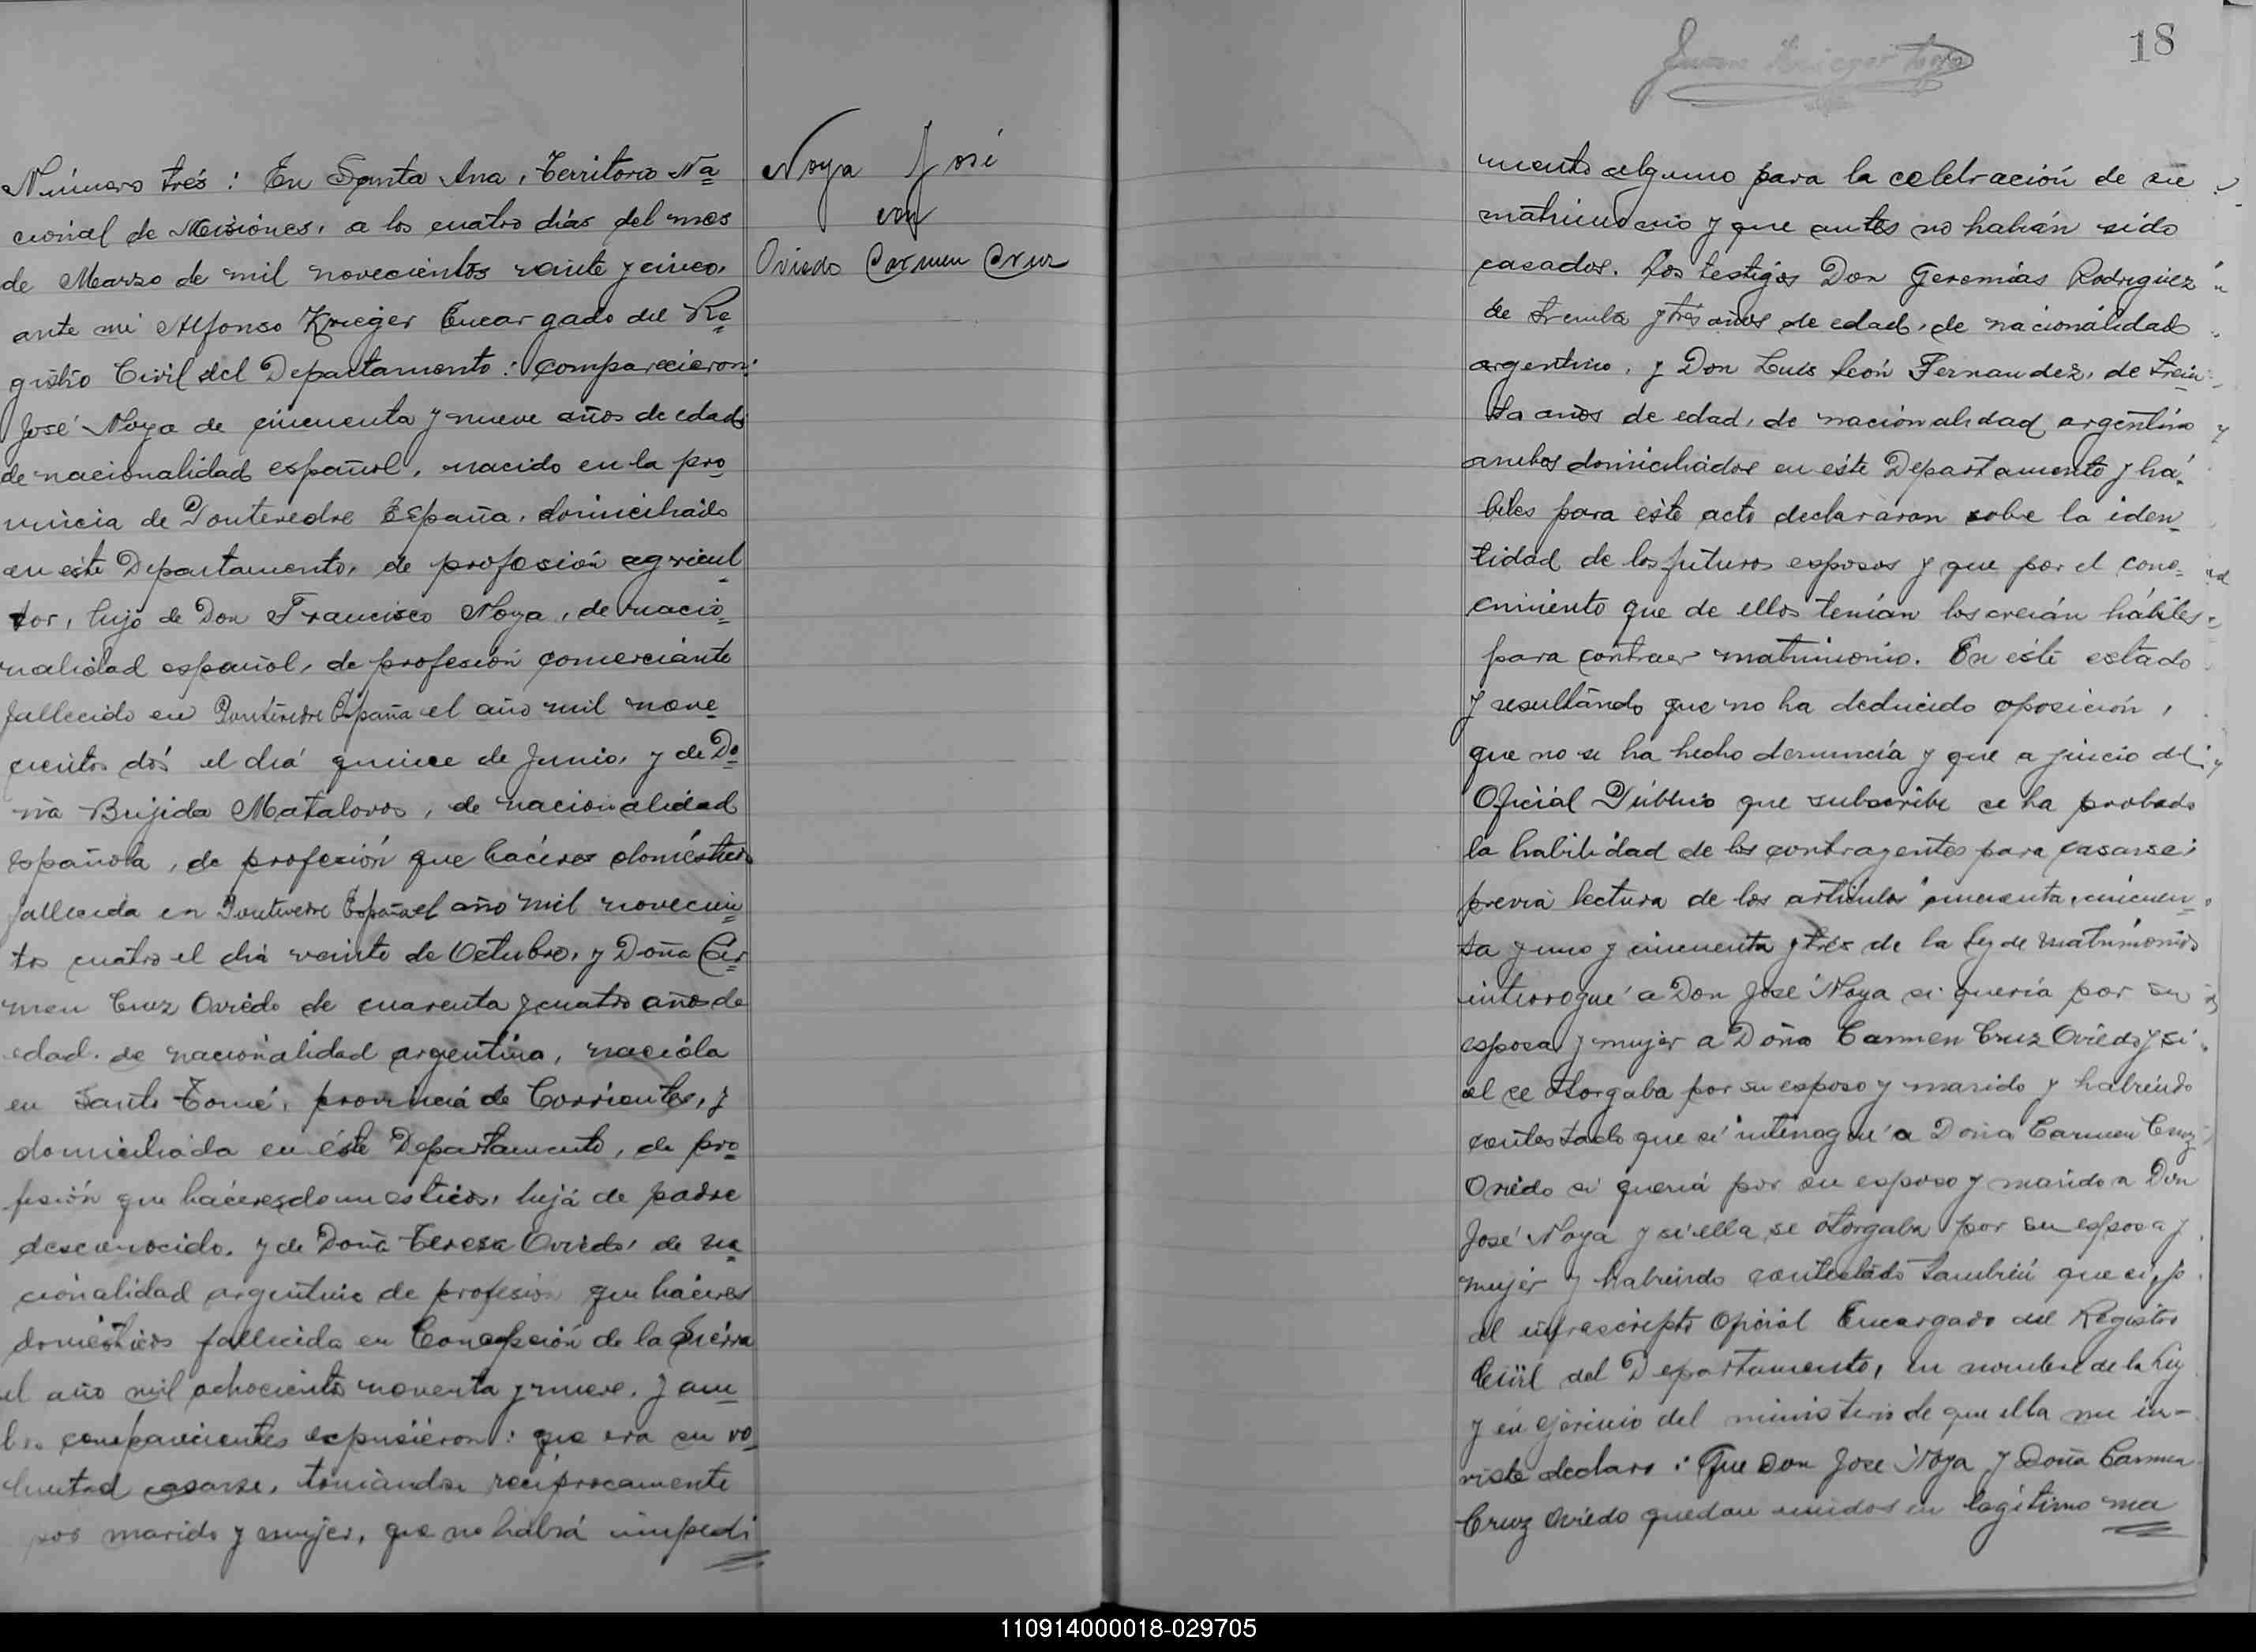 Número trés: En Santa Ana, Territorio Na
cional de Misiones, a los cuatro días del mes
de Marzo de mil novecientos veinte y cinco,
ante mi Alfonso Krieger Encargado del Re
gistro Civil del Departamento: comparecieron:
José Noya de cincuenta y nueve años de edad
de nacionalidad español, nacido en la pro
vincia de Pontevedre España, domiciliado
en este Departamento, de profesión agricul
tor, hijo de Don Francisco Noya, de nacio
nalidad español, de profesión comerciante
fallecido en Pontevedre España el año mil nove
cientos dós el día quince de Junio, y de Do
ña Brijida Matalovos, de nacionalidad
española, de profesión que haceres domésticos
fallecida en Pontevedre España el año mil novecien
tos cuatro el día veinte de Octubre, y Doña Cár
men Cruz Oviédo de cuarenta y cuatro años de
edad, de nacionalidad argentina, nacióla
en Santo Tomé, provincia de Corrientes, y
domiciliada en éste Departamento, de pro
fesión que haceres domesticos, hija de padre
desconocido, y de Doña Teresa Oviedo, de na
cionalidad argentina de profesión que haceres
domésticos fallecida en Concepción de la Sierra
el año mil ochocientos noventa y nueve. y am
bos comparecientes expusieron: que era su vo
luntad casarse, tomándose recíprocamente
por marido y mujer, que no habrá impedi
Noya José
con
Oviedo Carmen Cruz
18
Juan Krieger
mento alguno para la celebración de su
matrimonio y que antes no habían sido
casados. Los testigos Don Geremías Rodriguez
de treinta y trés años de edad, de nacionalidad
argentino, y Don Luis León Fernandez, de trein
ta años de edad, de nacionalidad argentino
ambos domiciliados en este Departamento y há
biles para este acto declararon sobre la iden
tidad de los futuros esposos y que por el cono
cimiento que de ellos tenían los creían hábiles
para contraer matrimonio. En este estado
y resultando que no ha deducido oposición,
que no se ha hecho denuncia y que a juicio del
Oficial Público que subscribe se ha probado
la habilidad de los contrayentes para casarse;
previa lectura de los articulos cincuenta, cincuen
ta y uno y cincuenta y trés de la Ley de Matrimonio
interrogué a Don José Noya si quería por su
esposa y mujer a Doña Carmen Cruz Oviedo y si
el se otorgaba por su esposo y marido y habiendo
contestado que sí interrogué a Doña Carmen Cruz
Oviédo si quería por su esposo y marido a Don
José Noya y si ella se otorgaba por su esposa y
mujer y habiendo contestado también que si, yo
el infrascripto Oficial Encargado del Registro
Civil del Departamento, en nombre de la Ley
y en ejercicio del ministerio de que ella me in-
viste declaro: Que Don Jose Noya y Doña Carmen
Cruz Oviedo quedan unidos en legítimo ma
110914000018-029705